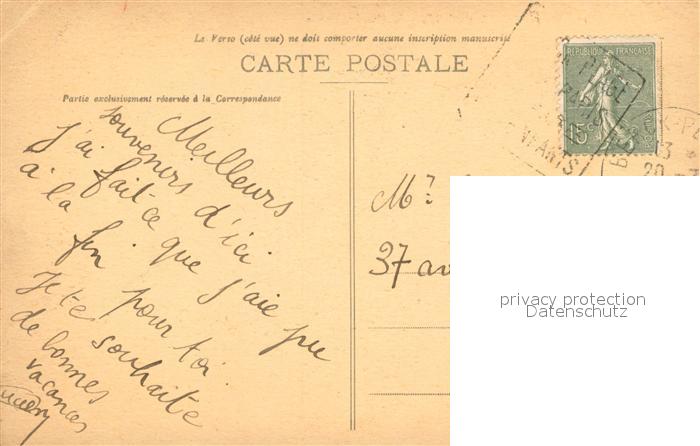 Le Verso (côté vue) ne doit comporter aucune inscription manuscrite
CARTE POSTALE
Partie exclusivement réservée à la Correspondance
Meilleurs
souvenirs d'ici.
J'ai fait ce que j'aie pu
à la fin pour toi.
Je te souhaite
de bonnes
vacances
M.
37 av
REPUBLIQUE FRANÇAISE
15c
PLAGE
PARIS
privacy protection
Datenschutz